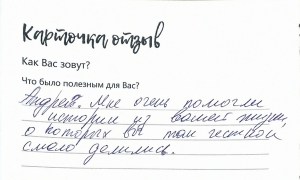 Карточка отзыв
Как Вас зовут?
Что было полезным для Вас?
Андрей. Мне очень помогли
истории из вашей жизни,
о которых вы так честно и
смело делились.